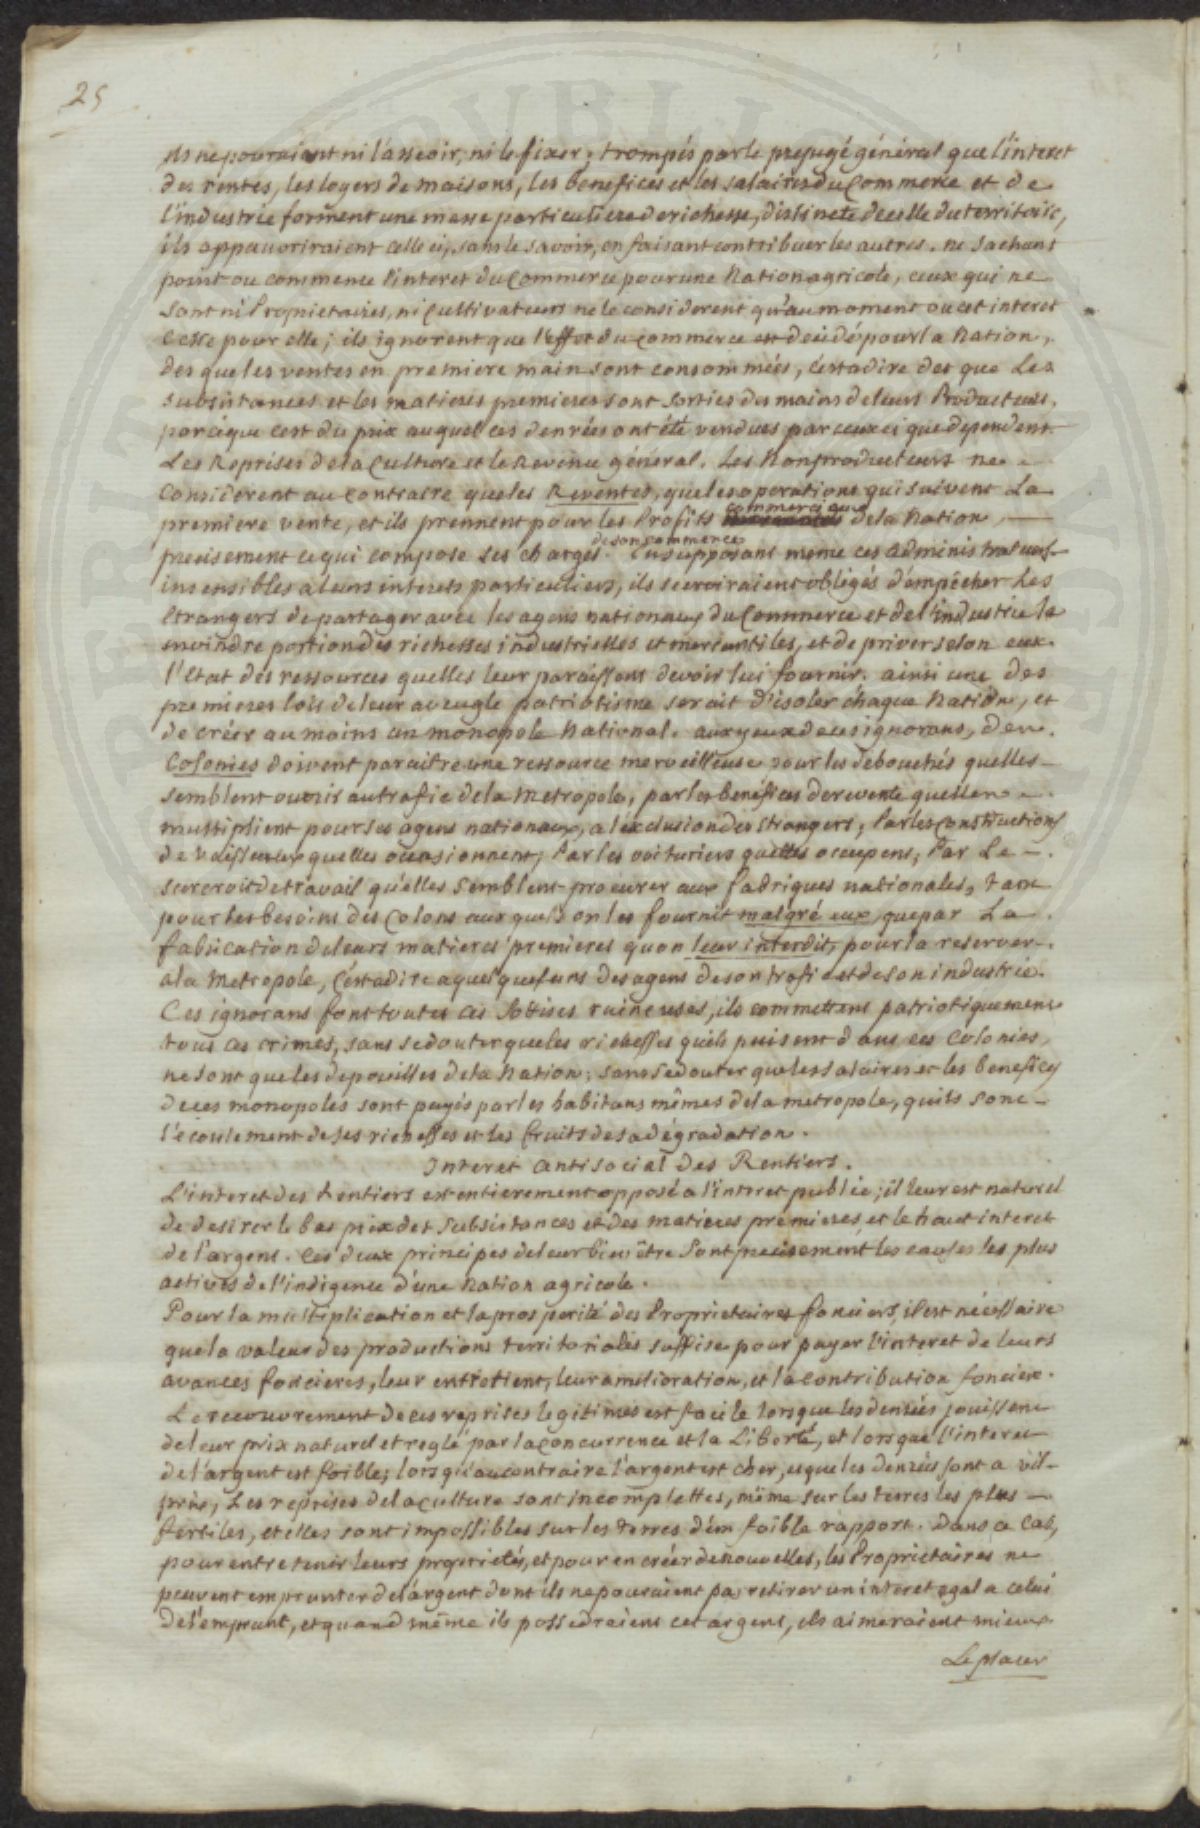 25
ils ne pouraient ni l'asseoir, ni le fixer; trompés par le préjugé général que l'interet
des rentes, les loyers de maisons, les benefices et les salaires du Commerce et de
l'industrie forment une masse particuliere de richesse, distincte de celle du territoire,
ils appauvriraient celle ci, sans le savoir, en faisant contribuer les autres. ne sachant
point ou commence l'interet du Commerce pour une Nation agricole, ceux qui ne
sont ni Proprietaires, ni Cultivateurs ne le considerent qu'au moment ou cet interet
cesse pour elle; ils ignorent que l'effet du commerce est decidé pour la Nation,
des que les ventes en premiere main sont consommées, c'est adire des que Les
subsistances et les matieres premieres sont sorties des mains de leurs Producteurs,
parceque c'est du prix auquel ces denrées ont été vendues par ceux ci que dependent
Les Reprises de la Culture et le Revenu général. Les Nonproducteurs ne
Considerent au Contraire que les Reventes, que les operations qui suivent La
premiere vente, et ils prennent pour les Profits commerciaux de la Nation,
precisement ce qui compose les charges de son commerce. En supposant meme ces administrateurs
insensibles a leurs interets particuliers, ils se croiraient obligés d'empêcher Les
Etrangers de partager avec les agens nationaux du Commerce et de l'industrie la
moindre portion des richesses industrielles et mercantiles, et de priver selon eux
l'Etat des ressources quelles leur paraissent devoir lui fournir. ainsi une des
premieres lois de leur aveugle patriotisme serait d'isoler chaque Nation, et
de créer au moins un monopole National. aux yeux de ces ignorans, des
Colonies doivent paraitre une ressource merveilleuse pour les debouchés quelles
semblent ouvrir au trafic de la Metropole, par les benefices de revente quelles
multiplient pour ses agens nationaux, a l'exclusion des Etrangers, Par les Constructions
de Vaisseaux quelles occasionnent; Par les voituriers quelles occupent; Par Le
surcroit de travail qu'elles semblent procurer aux fabriques nationales, tant
pour les besoins des Colons aux quels on les fournit malgré eux, que par La
fabrication de leurs matieres premieres quon leur interdit, pour la reserver
ala Metropole, C'estadire a quelques uns des agens de son trafic et de son industrie.
Ces ignorans font toutes ces sottises ruineuses, ils commettent patriotiquement
tous ces crimes, sans se douter que les richesses quils puisent dans ces Colonies
ne sont que les depouilles de la Nation; sans se douter que les salaires et les benefices
de ces monopoles sont payés par les habitans mêmes de la metropole, quils sont
l'écoulement de ses richesses et les fruits de sa dégradation.
Interet antisocial des Rentiers.
L'interet des Rentiers est entierement opposé a l'interet public; il leur est naturel
de desirer le bas prix des subsistances et des matieres premieres, et le haut interet
de l'argent. Ces deux principes de leur bien être sont precisement les causes les plus
actives de l'indigence d'une Nation agricole.
Pour la multiplication et la prosperité des Proprietaires fonciers, il est nécessaire
que la valeur des productions territoriales suffise pour payer l'interet de leurs
avances foncieres, leur entretient, leur amelioration, et la contribution fonciere.
Le recouvrement de ces reprises legitimes est facile lorsque les denrées jouissent
de leur prix naturel et reglé par la concurrence et la Liberté, et lorsque l'interet
de l'argent est foible; lorsqu'au contraire l'argent est cher, et que les denrées sont a vil
prix, Les reprises de la culture sont incomplettes, même sur les terres les plus
fertiles, et elles sont impossibles sur les terres d'un foible rapport. Dans ce Cas,
pour entretenir leurs proprietés, et pour en créer de nouvelles, les Proprietaires ne
peuvent emprunter de l'argent dont ils ne pouraient pas retirer un interet egal a celui
de l'emprunt, et quand même ils possedraient cet argent, ils aimeraient mieux
Le placer